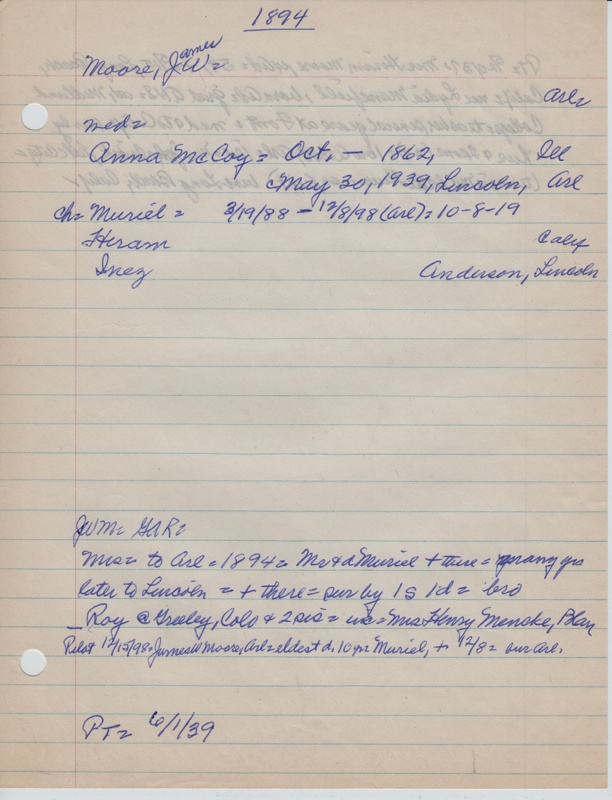 1894
Moore, James W=
Arl=
md=
Anna McCoy = Oct. — 1862, Ill
May 30, 1939, Lincoln, Arl
ch= Muriel = 3/19/88 — 12/8/98 (Arl) = 10-8-19
Hiram Calif
Inez Anderson, Lincoln
JWM= GAR=
Mrs= to Arl = 1894 = Mr & d Muriel + there = many yrs
later to Lincoln = + there = sur by 1s 1d = bro
Roy @ Greeley, Colo & 2 sis = inc = Mrs Henry Menske, Blair
Pilot 12/15/98 = James W Moore, Arl = eldest d, 10 yr Muriel, + 12/8 = our Arl.
PT= 6/1/39